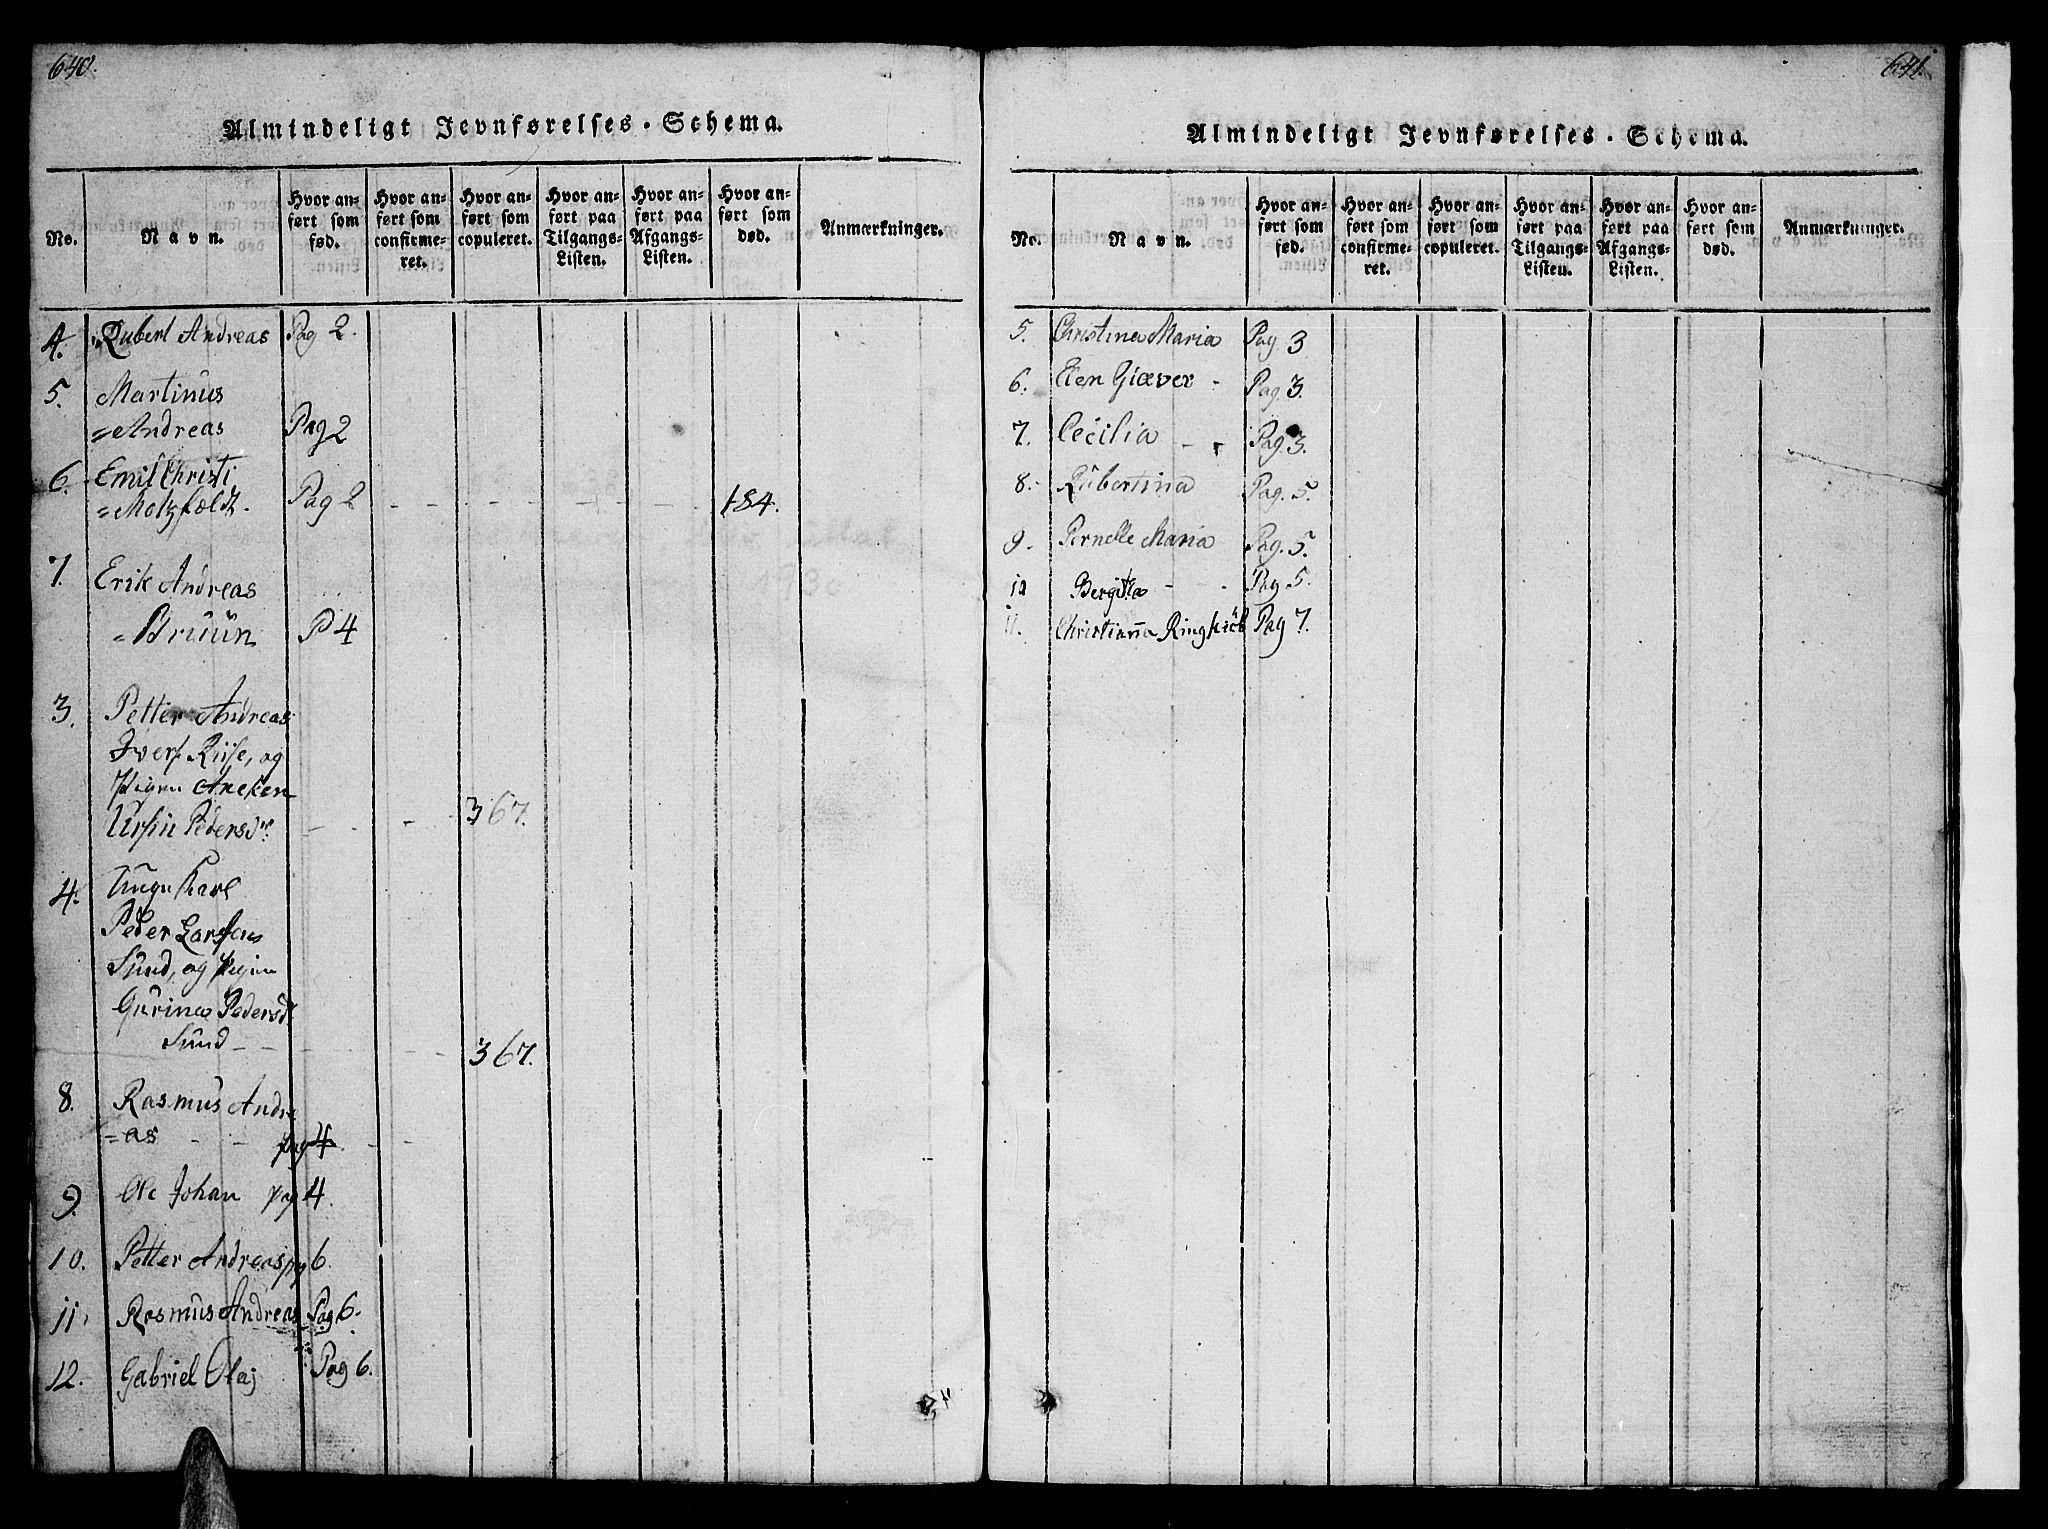 640.
Almindeligt Jevnførelses-Schema.
No.
Navn.
Hvor an-
ført som
fød.
Hvor an-
ført som
confirme-
ret.
Hvor an-
ført som
copuleret.
Hvor an-
ført paa
Tilgangs-
Listen.
Hvor an-
ført paa
Afgangs-
Listen.
Hvor an-
ført som
død.
Anmærkninger.
4. Rubert Andreas Pag 2.
5. Martinus
=Andreas Pag 2
6. Emil Christi
=Motzfældt. Pag 2 - - - - - 184.
7. Erik Andreas
=Bruun P 4
3. Petter Andreas
Ivers. Riise, og
Pigen Aneken
Ursin Pedersdr. - - - 367.
4. Unge Karl
Peder Larssen
Sund, og Pigen
Gurina Pedersd
Sund - - - - 367.
8. Rasmus Andre
=as - - pag 4
9. Ole Johan pag 4.
10. Petter Andreas pg 6
11. Rasmus Andreas Pag 6.
12. Gabriel Olaj Pag 6.
641.
Almindeligt Jevnførelses-Schema.
No.
Navn.
Hvor an-
ført som
fød.
Hvor an-
ført som
confirme-
ret.
Hvor an-
ført som
copuleret.
Hvor an-
ført paa
Tilgangs-
Listen.
Hvor an-
ført paa
Afgangs-
Listen.
Hvor an-
ført som
død.
Anmærkninger.
5. Christina Maria Pag 3
6. Elen Giæver - Pag 3.
7. Cecilia - - Pag. 3.
8. Rubertina Pag. 5.
9. Pernelle Maria Pag. 5.
10 Bergitha - - Pag 5.
11. Christianna Ringkiöb Pag 7.